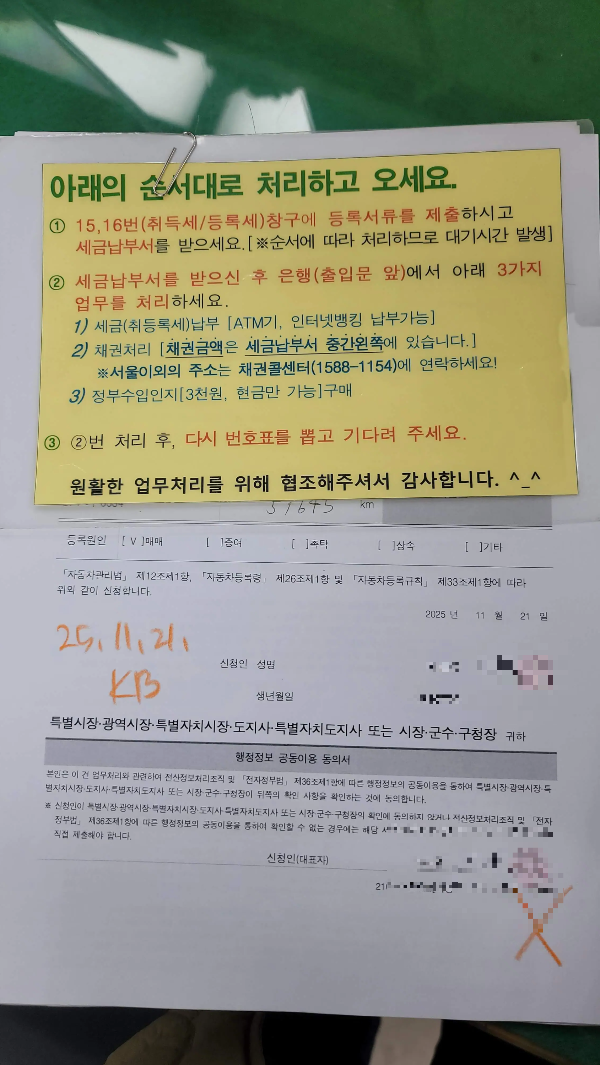 아래의 순서대로 처리하고 오세요.
① 15,16번(취득세/등록세)창구에 등록서류를 제출하시고
세금납부서를 받으세요.[※순서에 따라 처리하므로 대기시간 발생]
② 세금납부서를 받으신 후 은행(출입문 앞)에서 아래 3가지
업무를 처리하세요.
1) 세금(취등록세)납부 [ATM기, 인터넷뱅킹 납부가능]
2) 채권처리 [채권금액은 세금납부서 중간왼쪽에 있습니다.]
※서울이외의 주소는 채권콜센터(1588-1154)에 연락하세요!
3) 정부수입인지[3천원, 현금만 가능]구매
③ ②번 처리 후, 다시 번호표를 뽑고 기다려 주세요.
원활한 업무처리를 위해 협조해주셔서 감사합니다. ^_^
51645 km
등록원인 [ V ]매매 [ ]증여 [ ]촉탁 [ ]상속 [ ]기타
「자동차관리법」 제12조제1항, 「자동차등록령」 제26조제1항 및 「자동차등록규칙」 제33조제1항에 따라
위와 같이 신청합니다.
2025 년 11 월 21 일
25.11.21.
KB
신청인 성명
생년월일
특별시장·광역시장·특별자치시장·도지사·특별자치도지사 또는 시장·군수·구청장 귀하
행정정보 공동이용 동의서
본인은 이 건 업무처리와 관련하여 전산정보처리조직 및 「전자정부법」 제36조제1항에 따른 행정정보의 공동이용을 통하여 특별시장·광역시장·특
별자치시장·도지사·특별자치도지사 또는 시장·군수·구청장이 뒤쪽의 확인 사항을 확인하는 것에 동의합니다.
※ 신청인이 특별시장·광역시장·특별자치시장·도지사·특별자치도지사 또는 시장·군수·구청장의 확인에 동의하지 않거나 전산정보처리조직 및 「전자
정부법」 제36조제1항에 따른 행정정보의 공동이용을 통하여 확인할 수 없는 경우에는 해당
직접 제출해야 합니다.
신청인(대표자)